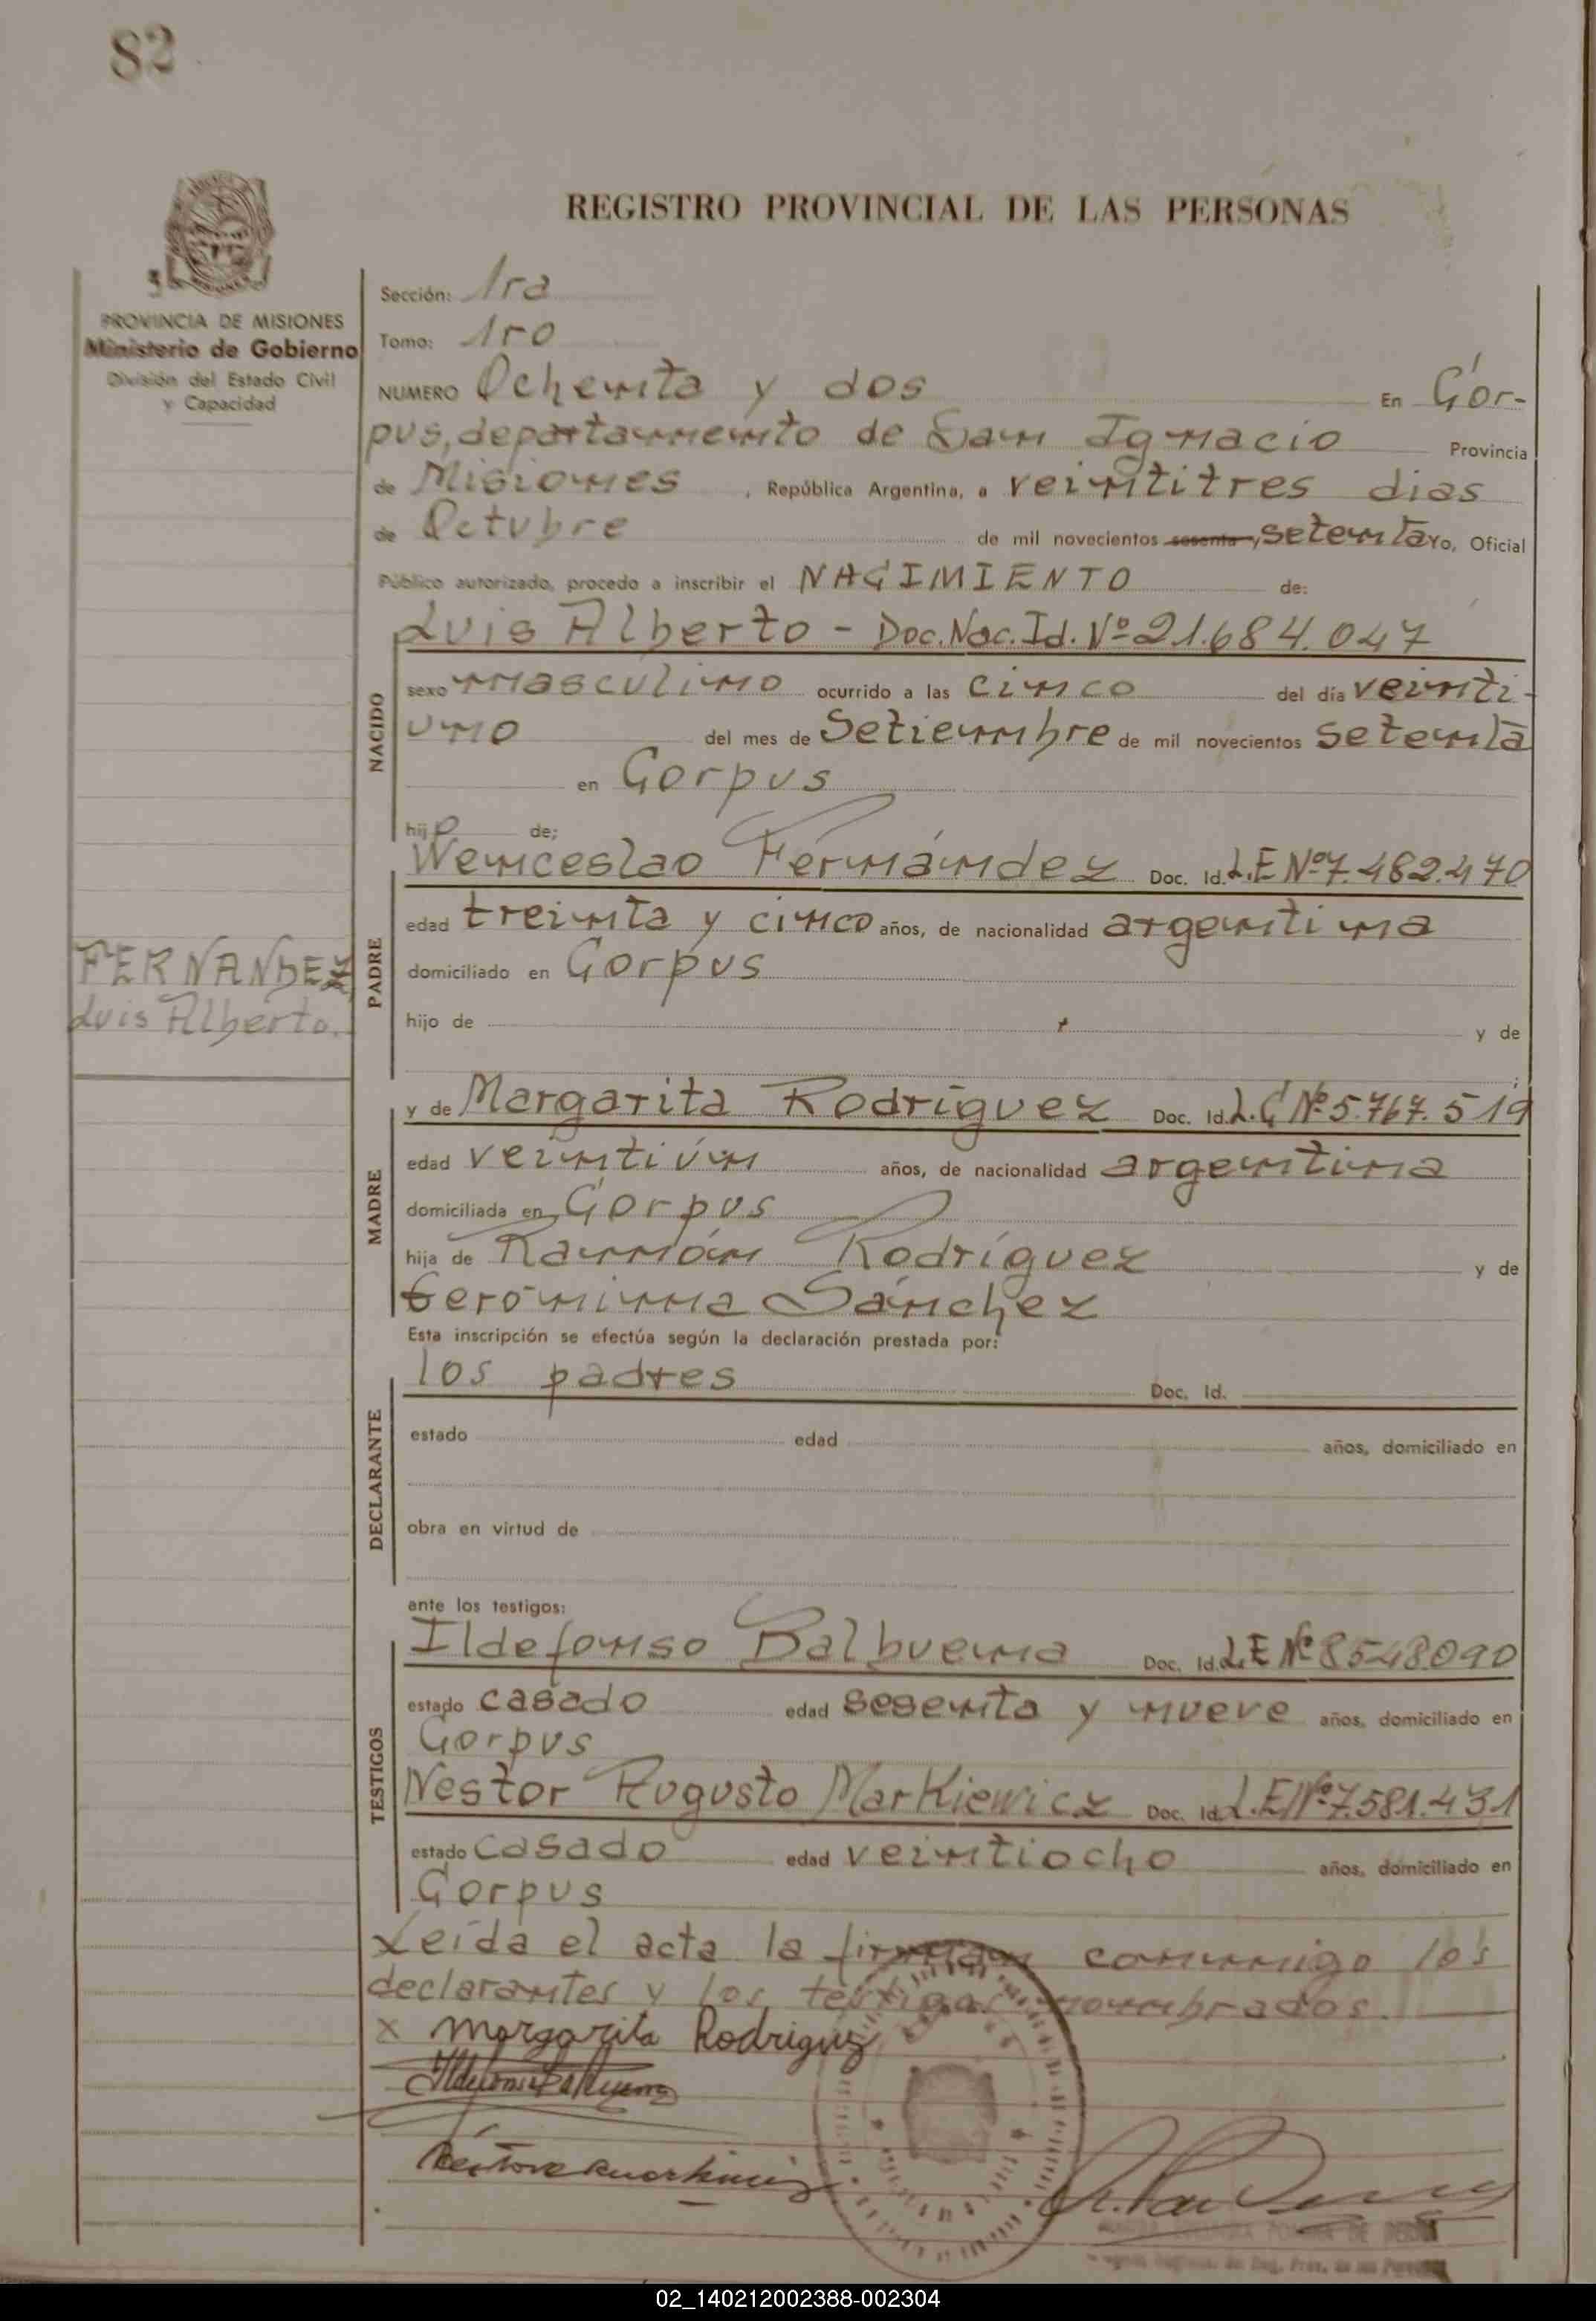 82
REGISTRO PROVINCIAL DE LAS PERSONAS
PROVINCIA DE MISIONES
Ministerio de Gobierno
División del Estado Civil
y Capacidad
FERNANDEZ
Luis Alberto.
Sección: 1ra
Tomo: 1ro
NUMERO Ochenta y dos En Cor-
pus, departamento de San Ignacio Provincia
de Misiones, República Argentina, a veintitres dias
de Octubre de mil novecientos sesenta, setenta Yo, Oficial
Público autorizado, procedo a inscribir el NACIMIENTO de:
Luis Alberto - Doc. Nac. Id. Nº 21.684.047
NACIDO
sexo masculino ocurrido a las cinco del día veinti-
uno del mes de Setiembre de mil novecientos setenta
en Corpus
hijo de;
PADRE
Wenceslao Fernández Doc. Id. L.E Nº 7.482.470
edad treinta y cinco años, de nacionalidad argentina
domiciliado en Corpus
hijo de y de
MADRE
y de Margarita Rodríguez Doc. Id. L.C Nº 5.767.519
edad veintiún años, de nacionalidad argentina
domiciliada en Corpus
hija de Ramón Rodríguez y de
Gerónima Sánchez
Esta inscripción se efectúa según la declaración prestada por:
DECLARANTE
los padres Doc. Id.
estado edad años, domiciliado en
obra en virtud de
ante los testigos:
TESTIGOS
Ildefonso Balbuena Doc. Id. L.E Nº 8548.090
estado casado edad sesenta y nueve años, domiciliado en
Corpus
Nestor Augusto Markiewicz Doc. Id. L.E Nº 7.581.431
estado casado edad veintiocho años, domiciliado en
Corpus
Leída el acta la firman conmigo los
declarantes y los testigos nombrados.
x Margarita Rodriguez
Ildefonso Balbuena
02_140212002388-002304